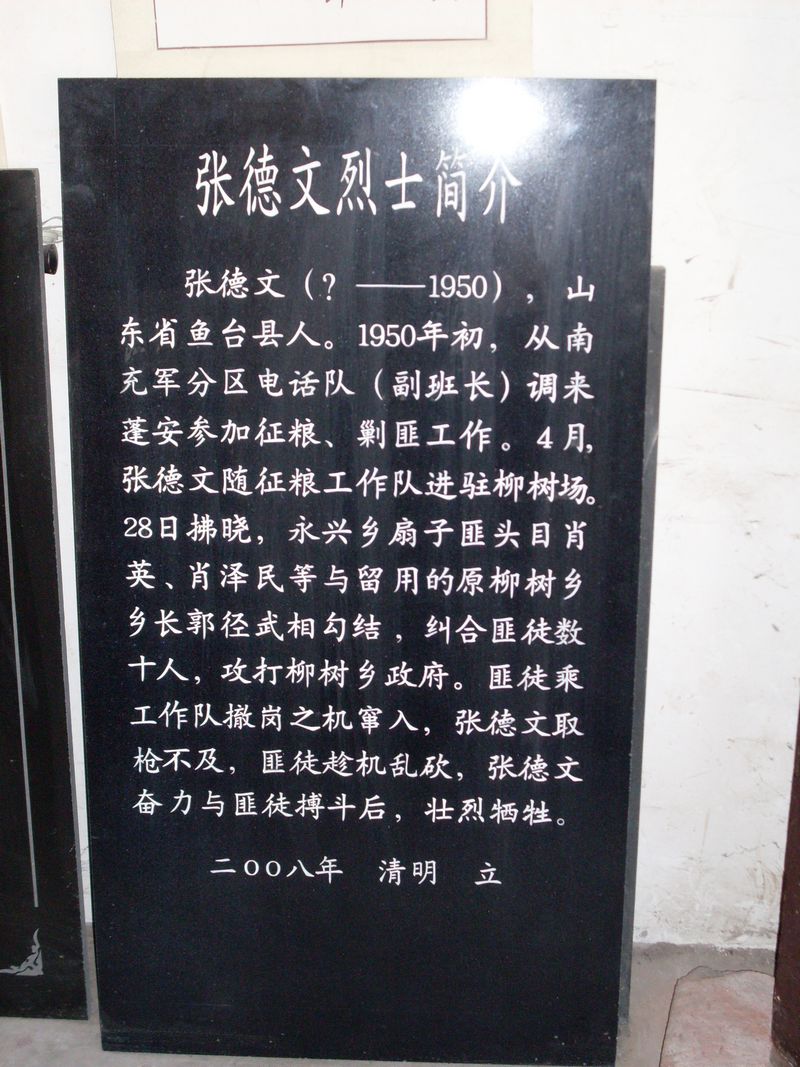 张德文烈士简介
张德文（？——1950），山
东省鱼台县人。1950年初，从南
充军分区电话队（副班长）调来
蓬安参加征粮、剿匪工作。4月，
张德文随征粮工作队进驻柳树场。
28日拂晓，永兴乡扇子匪头目肖
英、肖泽民等与留用的原柳树乡
乡长郭径武相勾结，纠合匪徒数
十人，攻打柳树乡政府。匪徒乘
工作队撤岗之机窜入，张德文取
枪不及，匪徒趁机乱砍，张德文
奋力与匪徒搏斗后，壮烈牺牲。
二OO八年 清明 立